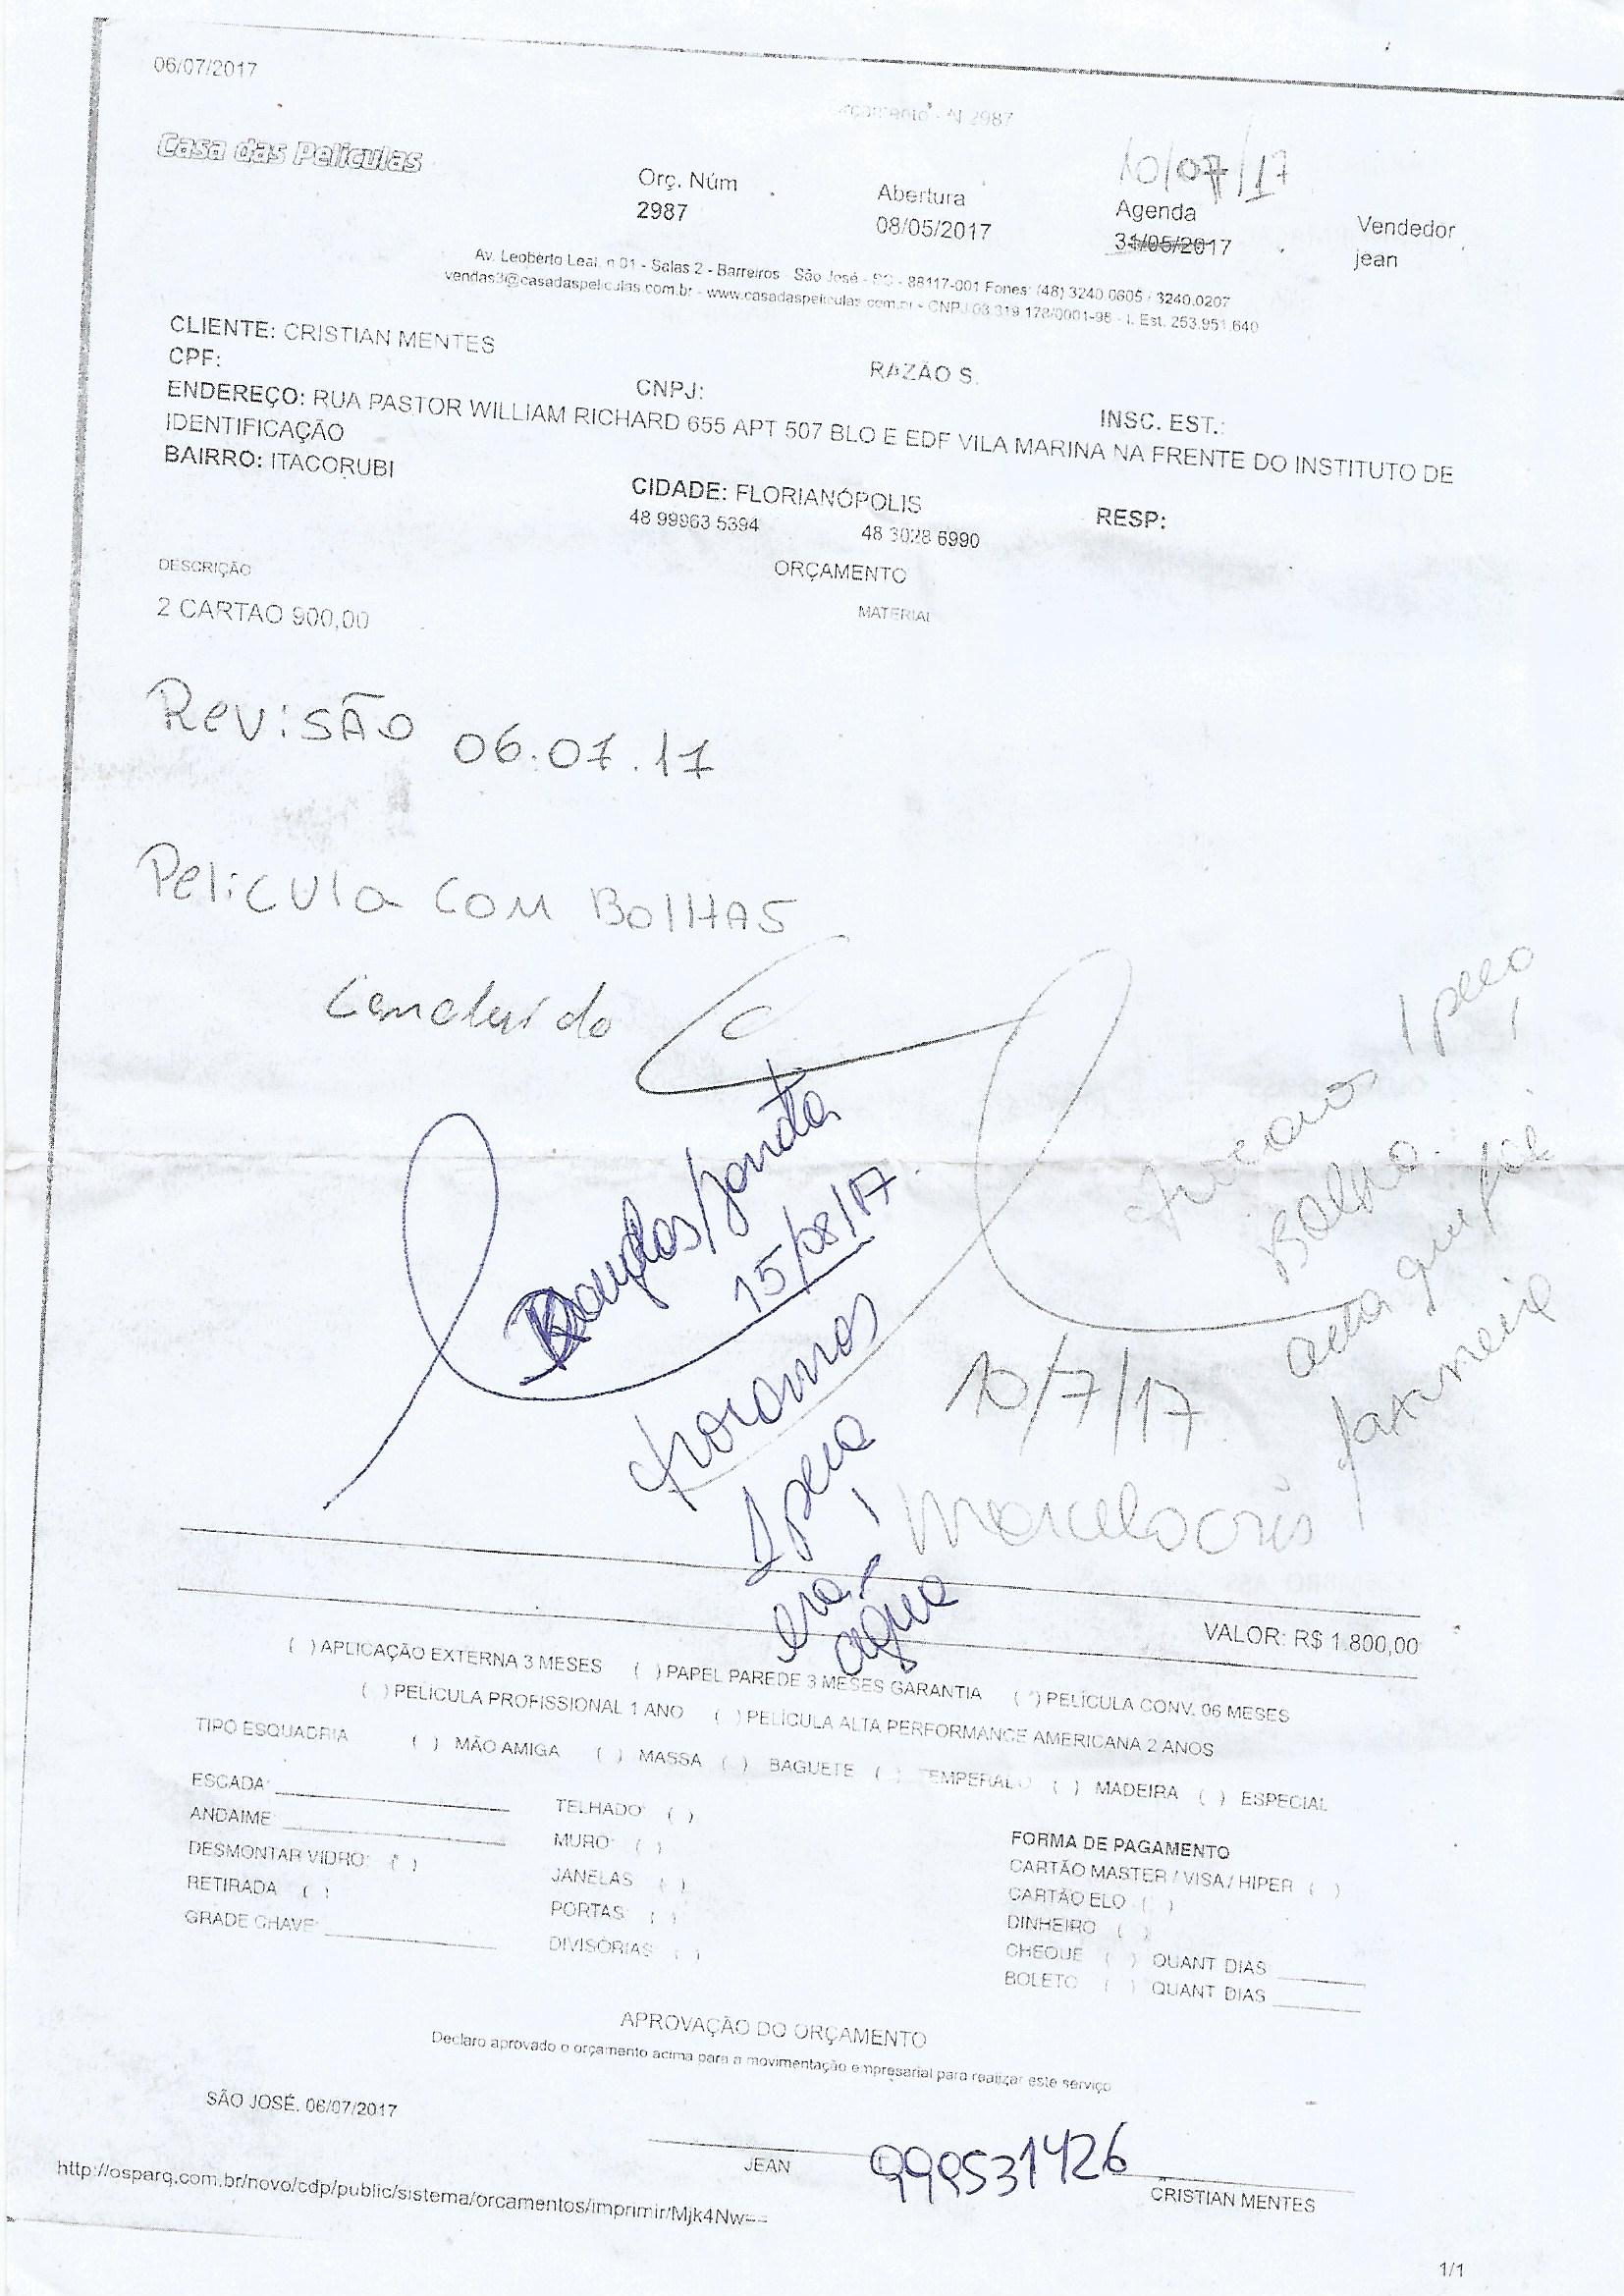 06/07/2017
Orçamento - N 2987
Casa das Películas
10/07/17
Orç. Núm
2987
Abertura
08/05/2017
Agenda
31/05/2017
Vendedor
jean
Av. Leoberto Leal, n 01 - Salas 2 - Barreiros - São José - SC - 88117-001 Fones: (48) 3240.0605 / 3240.0207
vendas3@casadaspeliculas.com.br - www.casadaspeliculas.com.br - CNPJ 03.319.178/0001-98 - I. Est. 253.951.640
CLIENTE: CRISTIAN MENTES
CPF:
CNPJ:
RAZÃO S.
INSC. EST.:
ENDEREÇO: RUA PASTOR WILLIAM RICHARD 655 APT 507 BLO E EDF VILA MARINA NA FRENTE DO INSTITUTO DE
IDENTIFICAÇÃO
BAIRRO: ITACORUBI
CIDADE: FLORIANÓPOLIS
RESP:
48 99963 5394
48 3028 6990
ORÇAMENTO
DESCRIÇÃO
MATERIAL
2 CARTAO 900,00
Revisão 06.07.17
Pelicula com BolHAS
Concluido
Douglas/Jonata
15/08/17.
trocamos
1 peça
era
água
trocamos 1 peça
Bolha.
acha que foi
10/7/17
VALOR: R$ 1.800,00
( ) APLICAÇÃO EXTERNA 3 MESES ( ) PAPEL PAREDE 3 MESES GARANTIA ( ) PELÍCULA CONV. 06 MESES
( ) PELÍCULA PROFISSIONAL 1 ANO ( ) PELÍCULA ALTA PERFORMANCE AMERICANA 2 ANOS
TIPO ESQUADRIA ( ) MÃO AMIGA ( ) MASSA ( ) BAGUETE ( ) TEMPERADO ( ) MADEIRA ( ) ESPECIAL
ESCADA:
ANDAIME:
DESMONTAR VIDRO: ( )
RETIRADA ( )
GRADE CHAVE:
TELHADO: ( )
MURO: ( )
JANELAS ( )
PORTAS: ( )
DIVISÓRIAS: ( )
FORMA DE PAGAMENTO
CARTÃO MASTER / VISA / HIPER ( )
CARTÃO ELO ( )
DINHEIRO ( )
CHEQUE ( ) QUANT DIAS
BOLETO ( ) QUANT DIAS
APROVAÇÃO DO ORÇAMENTO
Declaro aprovado o orçamento acima para a movimentação empresarial para realizar este serviço
SÃO JOSÉ, 06/07/2017
JEAN
999531426
CRISTIAN MENTES
http://osparq.com.br/novo/cdp/public/sistema/orcamentos/imprimir/Mjk4Nw==
1/1